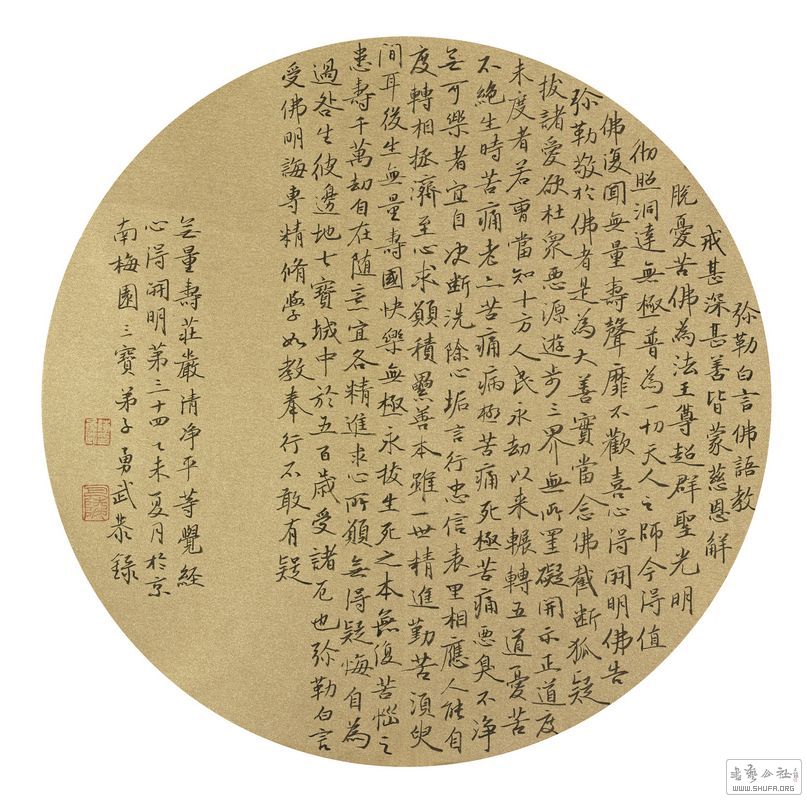 弥勒白言佛語教
戒甚深甚善皆蒙慈恩解
脫憂苦佛為法王尊超群聖光明
徹照洞達無極普為一切天人之師今得值
佛復聞無量壽聲靡不歡喜心得開明佛告
弥勒敬於佛者是為大善實當念佛截斷狐疑
拔諸愛欲杜眾惡源遊步三界無所罣礙開示正道度
未度者若曹當知十方人民永劫以来輾轉五道憂苦
不絕生時苦痛老亦苦痛病極苦痛死極苦痛惡臭不净
无可樂者宜自决断洗除心垢言行忠信表里相應人能自
度轉相拯濟至心求願積累善本雖一世精進勤苦須臾
间耳後生無量壽國快樂無極永拔生死之本無復苦惱之
患壽千萬劫自在随意宜各精進求心所願無得疑悔自為
過咎生彼邊地七寶城中於五百歲受諸厄也弥勒白言
受佛明誨專精脩學如教奉行不敢有疑
无量壽莊嚴清净平等覺經
心得開明第三十四乙未夏月於京
南梅園三寶弟子勇武恭錄
书艺公社
WWW.SHUFA.ORG